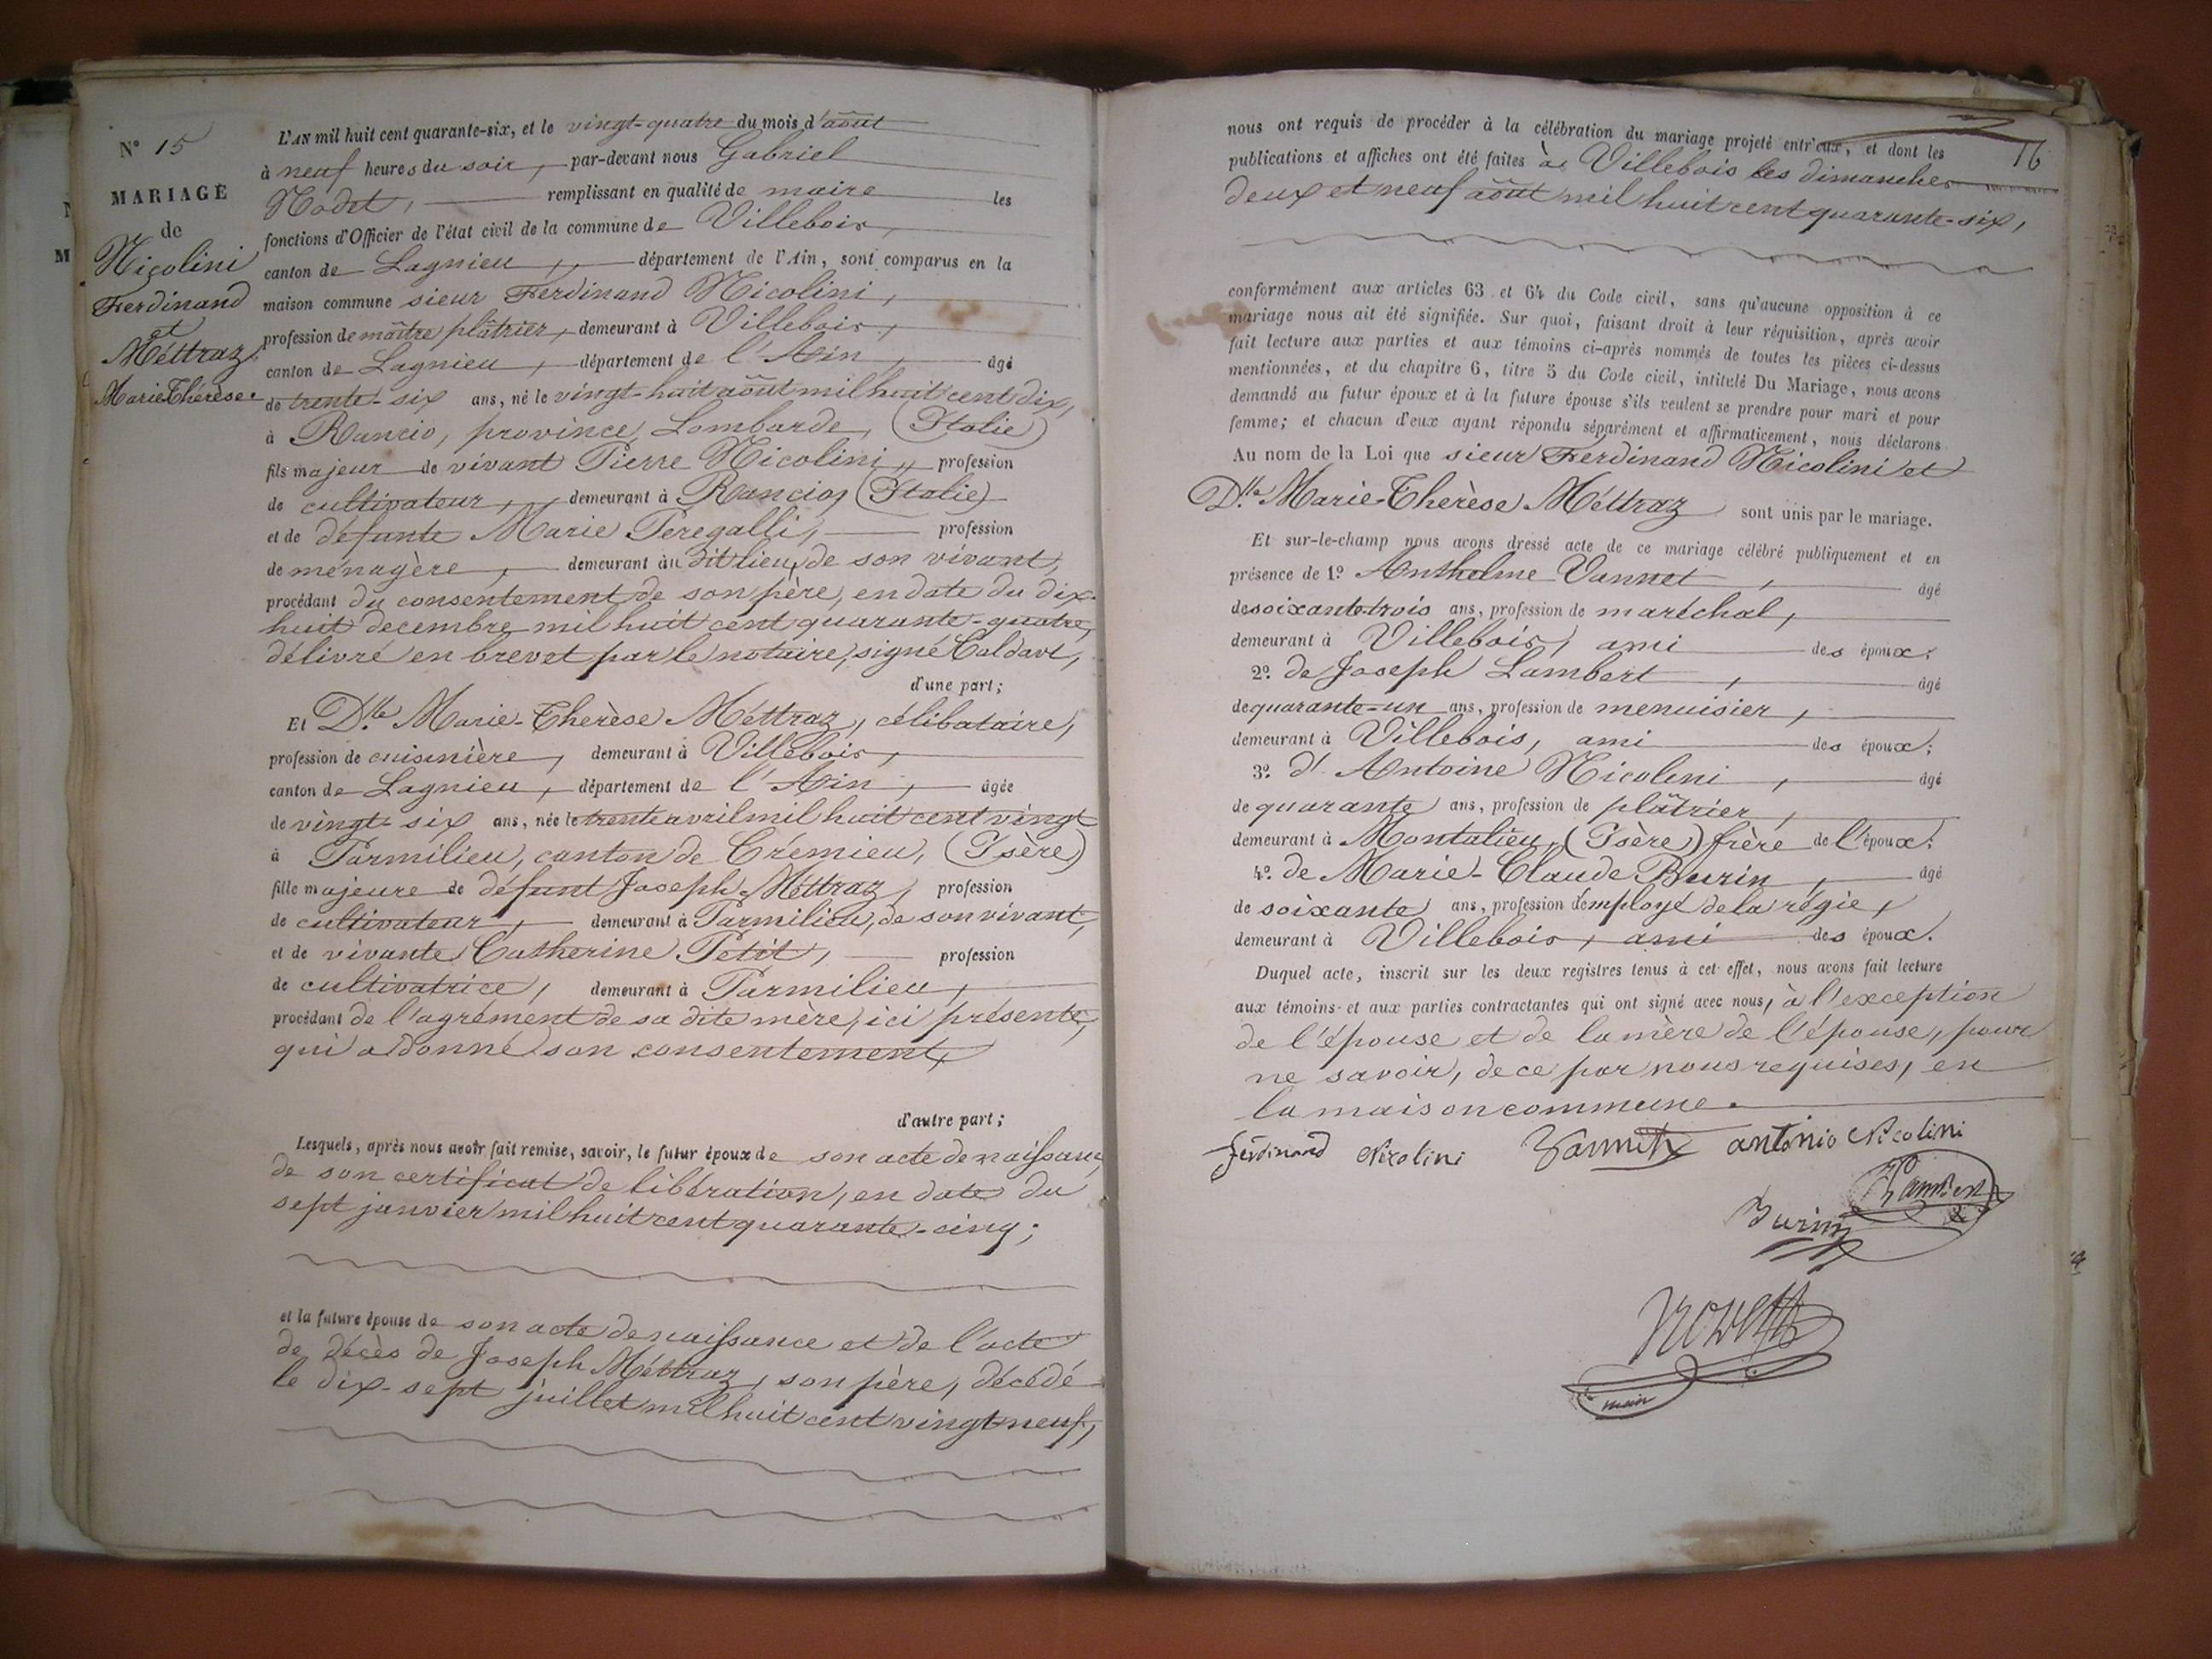 N° 15
MARIAGE
de
Nicolini
Ferdinand
et
Méttraz
Marie Thérèse.
L'AN mil huit cent quarante-six, et le vingt-quatre du mois d'août
à neuf heures du soir, par-devant nous Gabriel
Nodet, remplissant en qualité de maire les
fonctions d'Officier de l'état civil de la commune de Villebois,
canton de Lagnieu, département de l'Ain, sont comparus en la
maison commune sieur Ferdinand Nicolini,
profession de maître plâtrier, demeurant à Villebois,
canton de Lagnieu, département de l'Ain, âgé
de trente-six ans, né le vingt-huit août mil huit cent dix,
à Rancio, province Lombarde, (Italie)
fils majeur de vivant Pierre Nicolini, profession
de cultivateur, demeurant à Rancio, (Italie)
et de défunte Marie Peregalli, profession
de ménagère, demeurant au dit lieu, de son vivant,
procédant du consentement de son père, en date du dix-
huit decembre mil huit cent quarante-quatre,
délivré en brevet par le notaire, signé Caldart,
d'une part;
Et Dlle Marie-Therèse Méttraz, célibataire,
profession de cuisinière, demeurant à Villebois,
canton de Lagnieu, département de l'Ain, âgée
de vingt-six ans, née le trente avril mil huit cent vingt
à Parmilieu, canton de Crémieu, (Isère)
fille majeure de défunt Joseph Méttraz, profession
de cultivateur, demeurant à Parmilieu, de son vivant,
et de vivante Catherine Petit, profession
de cultivatrice, demeurant à Parmilieu,
procédant de l'agrément de sa dite mère, ici présente,
qui a donné son consentement,
d'autre part;
Lesquels, après nous avoir fait remise, savoir, le futur époux de son acte de naissance,
de son certificat de libération, en date du
sept janvier mil huit cent quarante-cinq;
et la future épouse de son acte de naissance et de l'acte
de décès de Joseph Méttraz, son père, décédé
le dix-sept juillet mil huit cent vingt neuf,
16
nous ont requis de procéder à la célébration du mariage projeté entr'eux, et dont les
publications et affiches ont été faites à Villebois les dimanches
deux et neuf août mil huit cent quarante-six,
conformément aux articles 63 et 64 du Code civil, sans qu'aucune opposition à ce
mariage nous ait été signifiée. Sur quoi, faisant droit à leur réquisition, après avoir
fait lecture aux parties et aux témoins ci-après nommés de toutes les pièces ci-dessus
mentionnées, et du chapitre 6, titre 5 du Code civil, intitulé Du Mariage, nous avons
demandé au futur époux et à la future épouse s'ils veulent se prendre pour mari et pour
femme; et chacun d'eux ayant répondu séparément et affirmativement, nous déclarons
Au nom de la Loi que sieur Ferdinand Nicolini et
Dlle Marie-Therèse Méttraz sont unis par le mariage.
Et sur-le-champ nous avons dressé acte de ce mariage célébré publiquement et en
présence de 1° Anthelme Vannet, âgé
de soixante-trois ans, profession de maréchal,
demeurant à Villebois, ami des époux;
2° de Joseph Lambert, âgé
de quarante-un ans, profession de menuisier,
demeurant à Villebois, ami des époux;
3° d'Antoine Nicolini, âgé
de quarante ans, profession de plâtrier,
demeurant à Montalieu, (Isère) frère de l'époux.
4° de Marie-Claude Burin, âgé
de soixante ans, profession d'employé de la régie,
demeurant à Villebois, ami des époux.
Duquel acte, inscrit sur les deux registres tenus à cet effet, nous avons fait lecture
aux témoins et aux parties contractantes qui ont signé avec nous, à l'exception
de l'épouse et de la mère de l'épouse, pour
ne savoir, de ce par nous requises, en
la maison commune.
ferdinand Nicolini Vannet antonio Nicolini
Lambert
Burin
Nodet